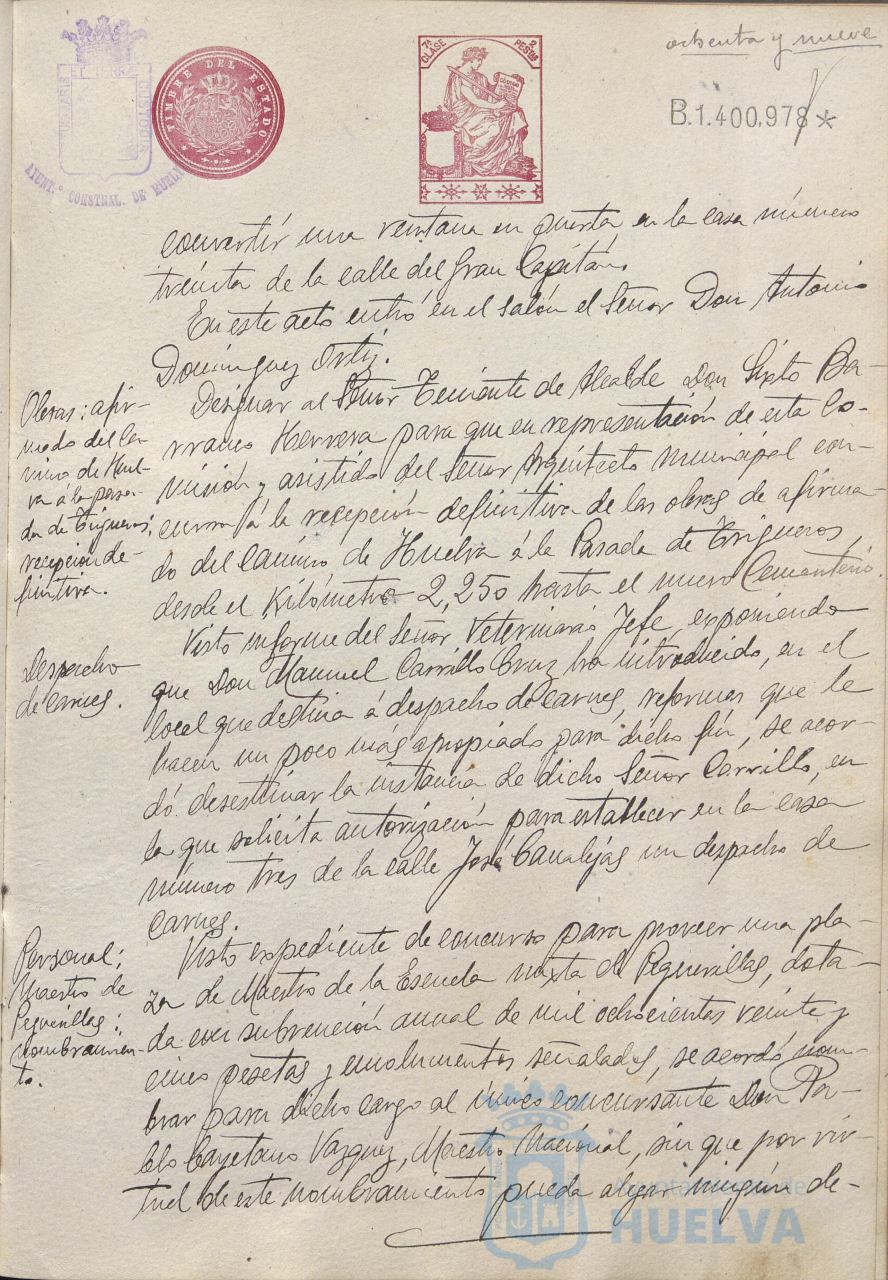 ochenta y nueve
B.1.400,978 *
TIMBRE DEL ESTADO
7ª CLASE
2 PESTAS
AYUNT.º CONSTNAL. DE HUELVA
convertir una ventana en puerta en la casa número
treinta de la calle del Gran Capitán.
En este acto entró en el salón el Señor Don Antonio
Domínguez Ortiz.
Obras: afir-
mado del Ca-
mino de Huel-
va á la pasa-
da de Trigueros:
recepción de-
finitiva.
Designar al Señor Teniente de Alcalde Don Sixto Ba-
rranco Herrera para que en representación de esta Co-
misión y asistido del Señor Arquitecto municipal con-
curra á la recepción definitiva de las obras de afirma-
do del Camino de Huelva á la Pasada de Trigueros,
desde el Kilómetro 2,250 hasta el nuevo Cementerio.
Despacho
de carnes.
Visto informe del Señor Veterinario Jefe, exponiendo
que Don Manuel Carrillo Cruz ha introducido, en el
local que destina á despacho de carnes, reformas que le
hacen un poco más apropiado para dicho fin, se acor-
dó desestimar la instancia de dicho Señor Carrillo, en
la que solicita autorización para establecer en la casa
número tres de la calle José Canalejas un despacho de
carnes.
Personal:
Maestro de
Peguerillas:
nombramien-
to.
Visto expediente de concurso para proveer una pla-
za de Maestro de la Escuela mixta de Peguerillas, dota-
da con subvención anual de mil ochocientas veinte y
cinco pesetas y emolumentos señalados, se acordó nom-
brar para dicho cargo al único concursante Don Pa-
blo Cayetano Vazquez, Maestro Nacional, sin que por vir-
tud de este nombramiento pueda alegar ningún de-
Ayuntamiento de
HUELVA